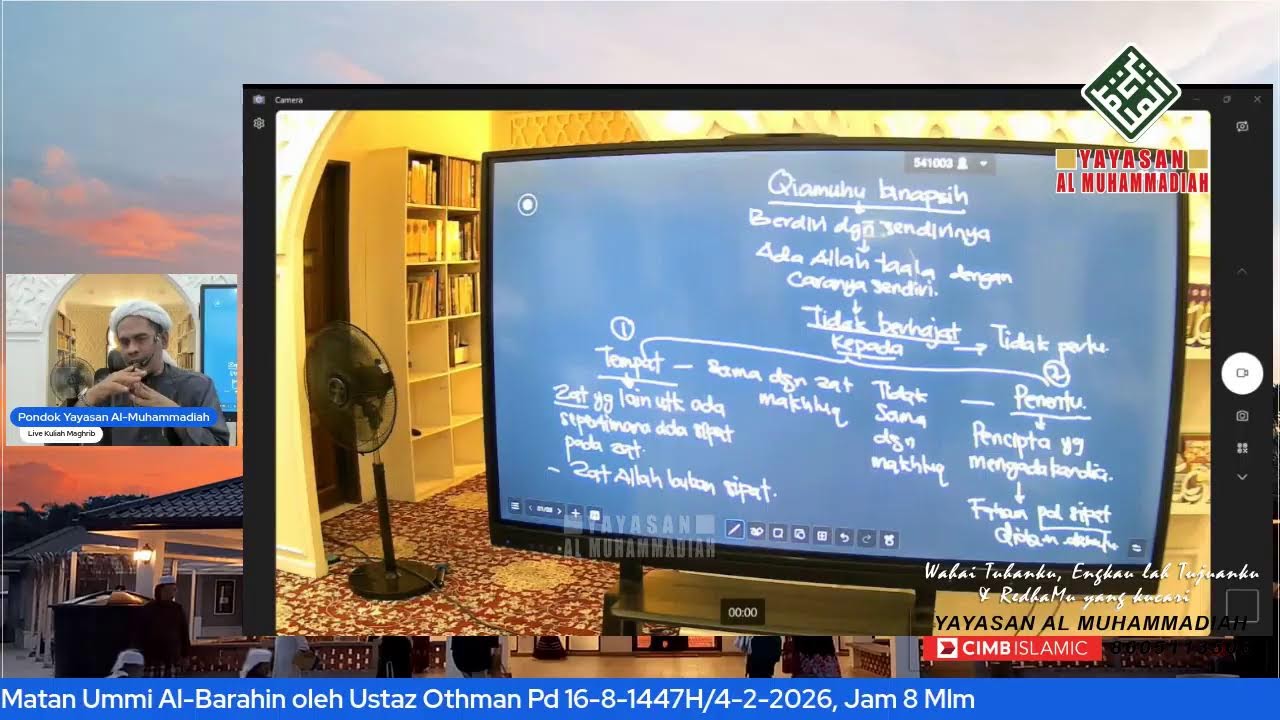 Camera
YAYASAN
AL MUHAMMADIAH
541003
Qiamuhu binapsih
Berdiri dgn sendirinya
Ada Allah taala dengan
Caranya sendiri.
Tidak berhajat
kepada
Tidak perlu.
1
2
Tempat — sama dgn zat
makhluq
Zat yg lain utk ada
sepertimana ada sipat
pada zat.
- Zat Allah bukan sipat.
Tidak
sama
dgn
makhluq
— Penentu.
Pencipta yg
mengadakandia.
pd sipat
Pondok Yayasan Al-Muhammadiah
Live Kuliah Maghrib
YAYASAN
AL MUHAMMADIAH
00:00
Wahai Tuhanku, Engkau lah Tujuanku
& RedhaMu yang kucari
YAYASAN AL MUHAMMADIAH
CIMB ISLAMIC
Matan Ummi Al-Barahin oleh Ustaz Othman Pd 16-8-1447H/4-2-2026, Jam 8 Mlm